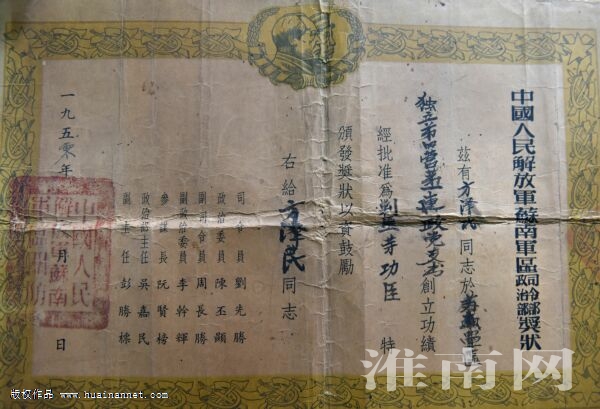 中國人民解放軍蘇南軍區司令部政治部獎狀
茲有方澤民同志於
独立第四营第五連創立功績
經批准為功臣 特
頒發獎狀以資鼓勵
右給 方澤民 同志
司令員 劉先勝
政治委員 陳丕顯
副司令員 周長勝
副政治委員 李幹輝
參謀長 阮賢榜
政治部主任 吳嘉民
副主任 彭勝標
一九五零年 月 日
中國人民
淮南网
版权作品 - www.huainannet.com